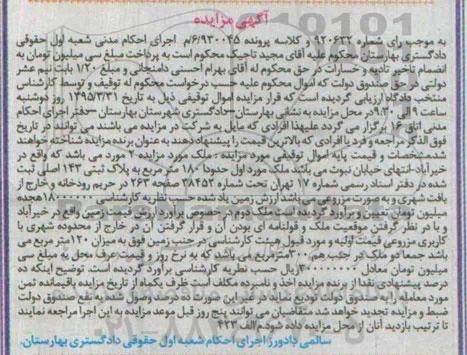 آگهی مزایده
به موجب رای شماره ۹۲۰۶۳۲ و کلاسه پرونده ۶/۹۳۰۰۴۵م اجرای احکام مدنی شعبه اول حقوقی
دادگستری بهارستان محکوم علیه آقای مجید تاجیک محکوم است به پرداخت مبلغ سی میلیون تومان به
انضمام تاخیر تادیه و خسارات در حق محکوم له آقای بهرام احسنی دامنجانی و مبلغ ۱/۲۰۰ بابت نیم عشر
دولتی در حق صندوق دولت که اموال محکوم علیه حسب درخواست محکوم له توقیف و توسط کارشناس
منتخب دادگاه ارزیابی گردیده است که قرار مزایده اموال توقیفی ذیل به تاریخ ۱۳۹۵/۳/۳۱ روز دوشنبه
ساعت ۹ الی ۹.۳۰ در محل مزایده به نشانی بهارستان – دادگستری شهرستان بهارستان – دفتر اجرای احکام
مدنی اتاق ۲۰ برگزار می گردد علیهذا افرادی که مایل به شرکت در مزایده می باشند می توانند در تاریخ
فوق الذکر مراجعه و فرد یا افرادی که بالاترین قیمت را پیشنهاد دهند به عنوان برنده مزایده شناخته خواهند
شد. مشخصات و قیمت پایه اموال توقیفی مورد مزایده . ملک مورد مزایده ۲ مورد می باشد که واقع در
خیرآباد انتهای خیابان نبوت می باشد ملک مورد اول حدودا ۱۸۰ متر مربع به پلاک ثبتی ۱۴۳ اصلی ثبت
شده در دفتر اسناد رسمی شماره ۱۷ تهران تحت شماره ۳۸۴۵۲ صفحه ۲۶۳ در حریم رودخانه و خارج از
بافت شهری و به صورت مزروعی می باشد ارزش زمین یاد شده حسب نظریه کارشناسی هجده
میلیون تومان تعیین و برآورد گردیده است ملک دوم در خصوص برآورد ارزش قیمت زمین واقع در خیرآباد
و با در نظر گرفتن موقعیت ملک و قولنامه ای بودن آن و قرار گرفتن آن در خارج از محدوده شهری با
کاربری مزروعی قیمت اولیه و مورد قبول هیئت کارشناسی در جنب زمین فوق به میزان ۱۲۰ متر مربع می
باشد جمعا دو ملک در جنب هم ۳۰۰ مترمربع می باشد که به نرخ روز و قیمت عرف محل به مبلغ سی
میلیون تومان معادل ۳۰۰۰۰۰۰۰۰ ریال حسب نظریه کارشناسی برآورد گردیده است. توضیح اینکه ده
درصد پیشنهادی نقدا از برنده مزایده اخذ و نامبرده مکلف است ظرف یکماه از تاریخ مزایده باقیمانده ثمن
مورد معامله را به صندوق دولت تودیع نماید در غیر این صورت ده درصد وصول شده به نفع صندوق دولت
ضبط و مزایده تجدید خواهد شد متقاضیان می توانند پنج روز قبل موعد مزایده به این اجرا مراجعه نمایند
تا ترتیب بازدید آنان از محل مزایده داده شود م الف ۴۲۳
سالمی دادورز اجرای احکام شعبه اول حقوقی دادگستری بهارستان.